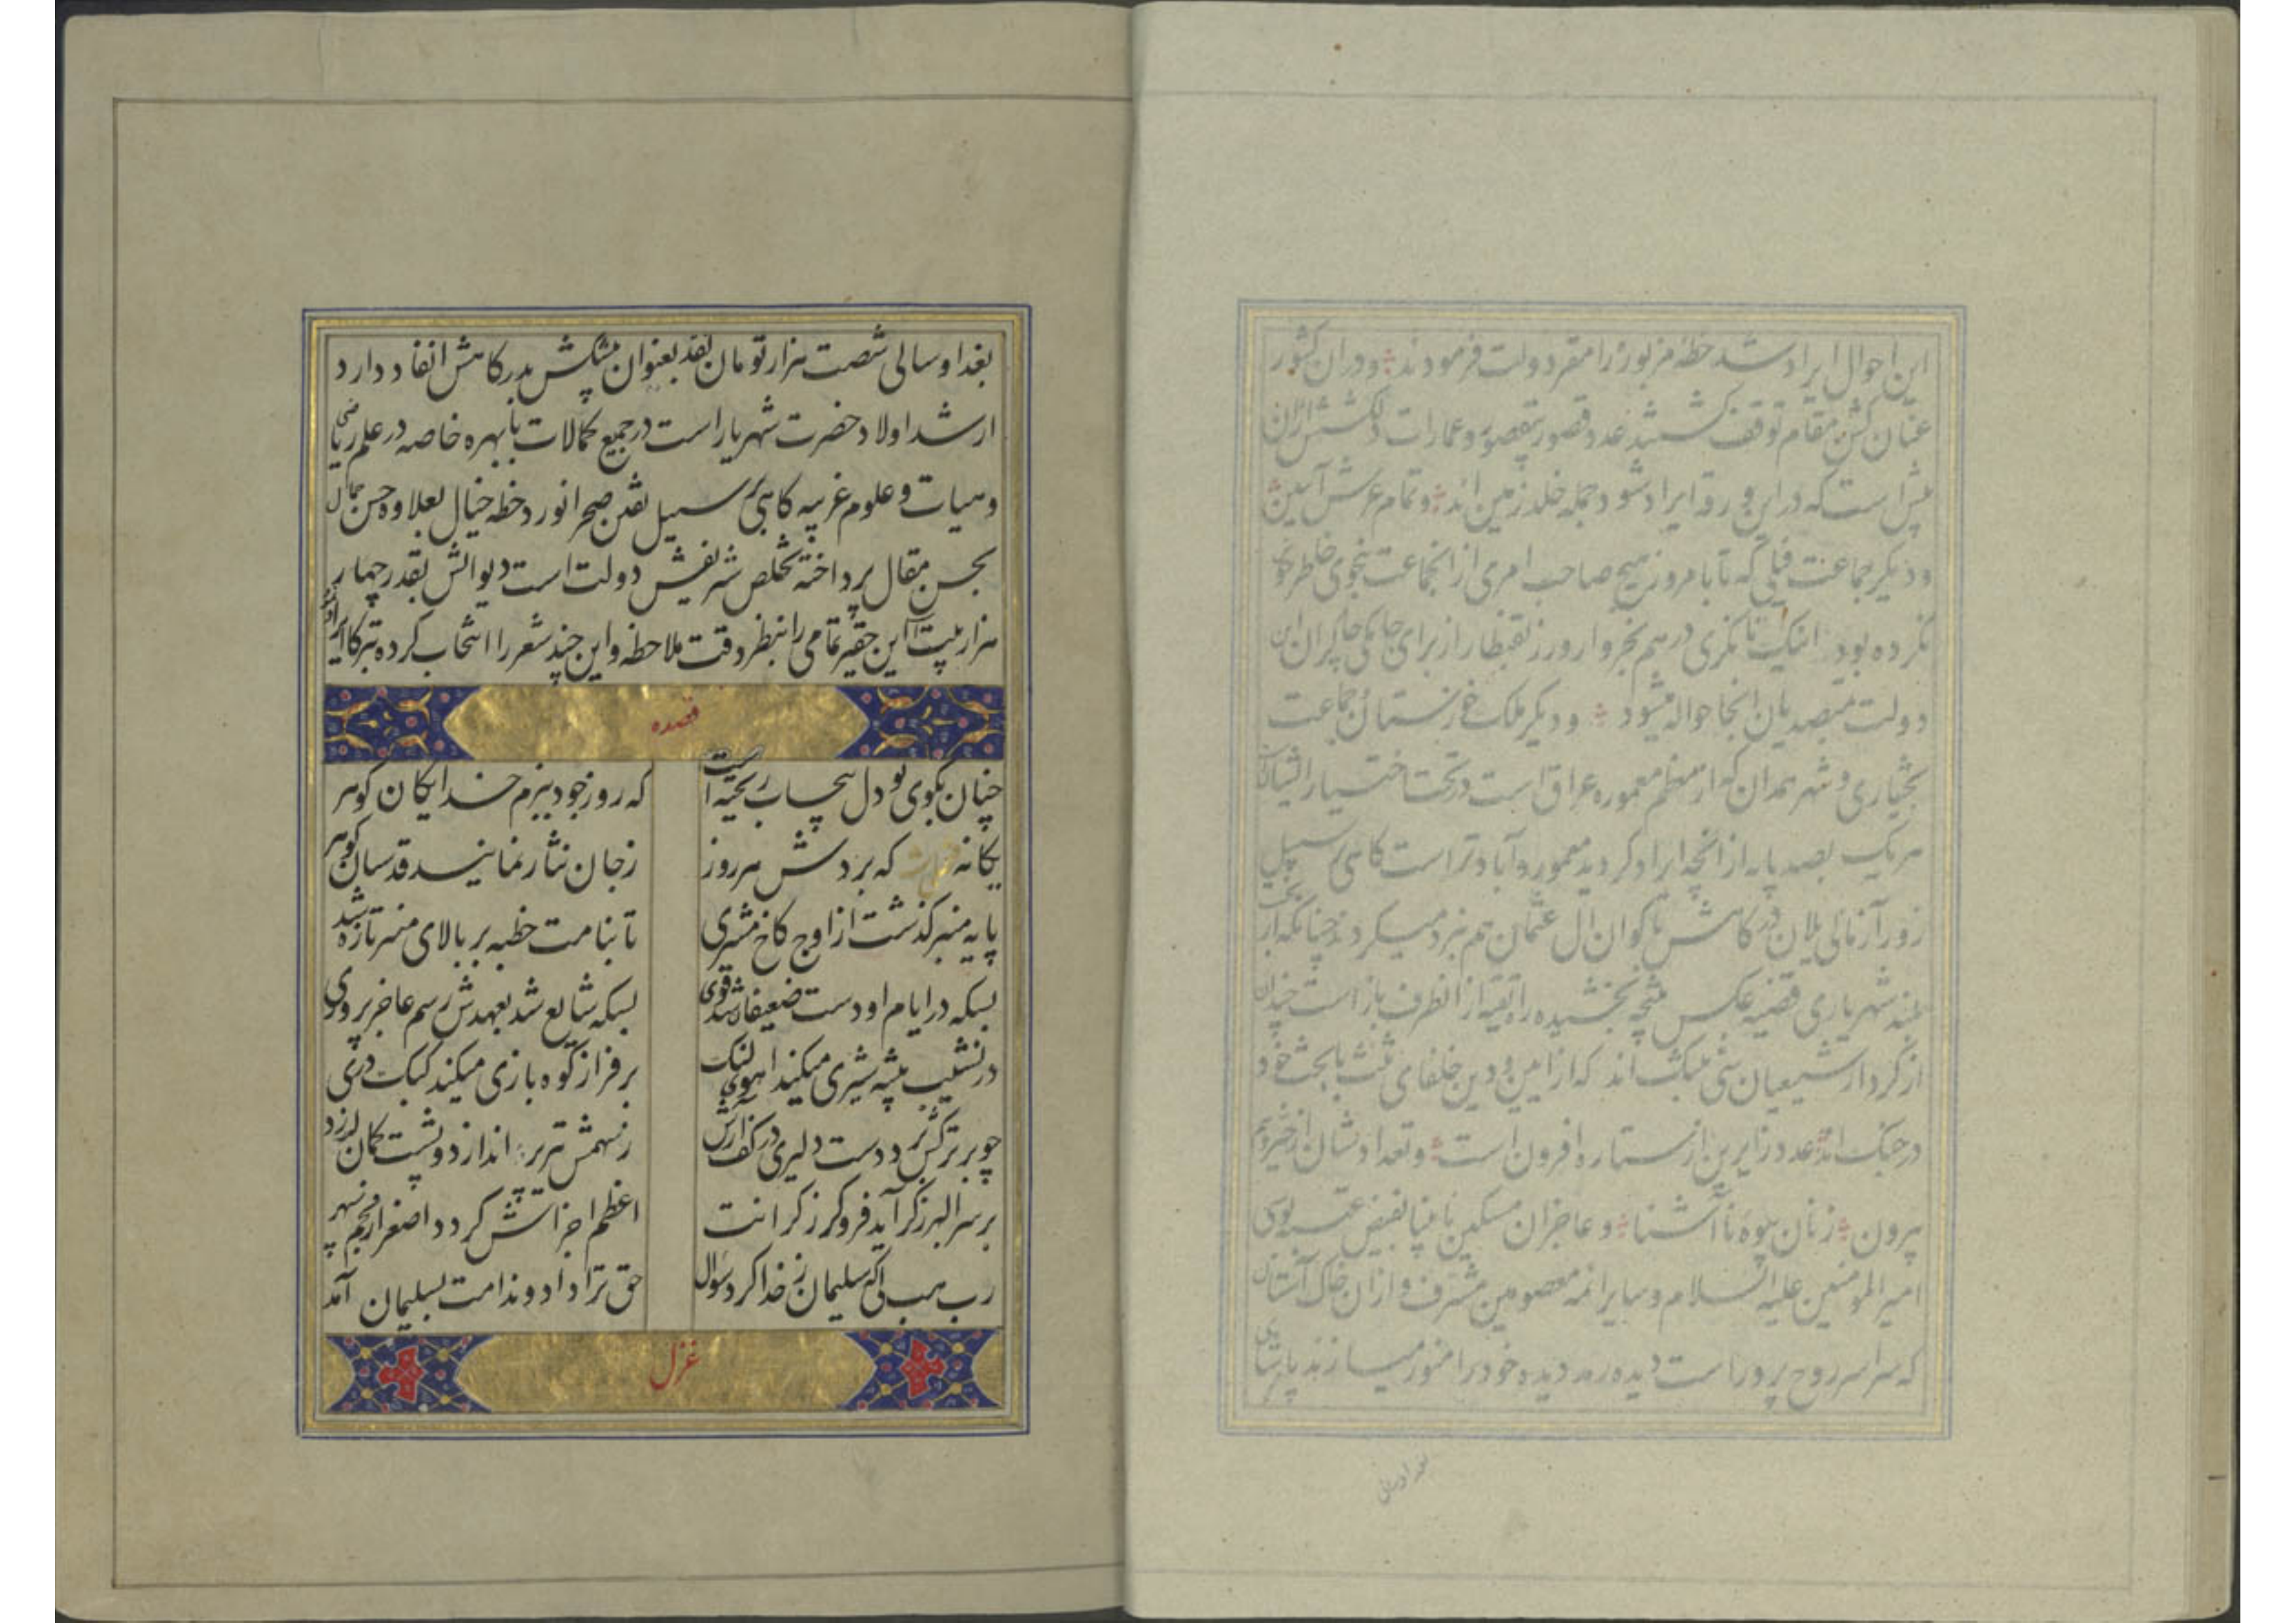 این احوال ایراد شد خطه مزبور را مقر دولت فرمودند و در ان کشور
عنان کش مقام توقف گشتند عدد قصور بیقصور و عمارات دلکشش از ان
بیش است که در این ورقه ایراد شود جمله خلد زمین اند و تمام عرش آیین
و دیگر جماعت که تا بامروز هیچ صاحب امری از انجماعت بنحوی خاطر
نکرده بود اینک تا در هم بخروار و زر بقنطار از برای چاکران این
دولت بمتصدیان انجا حواله میشود و دیگر ملک خوزستان و جماعت
بختیاری و شهر همدان که از معظم معموره عراق است در تحت اختیار ایشان
هر یک بصد پایه از انچه ایراد گردید معمور و آبادتر است کاهی بر سبیل
زور آزمائی یلان درکاهش با کوان آل عثمان هم نبرد میکردند چنانکه از بخت
بلند شهریاری قضیه عکس نتیجه بخشیده راه تقیه از انطرف باز است
از کردار شیعیان سنی که از امین و دین خلفای ثلث با بحث خود
در جنک اند عدد زایرین از ستاره افزون است و تعداد شان از
بیرون زنان بیوه نا آشنا و عاجزان مسکین نابینا بفیض عتبه بوسی
امیر المومنین علیه السلام و سایر ائمه معصومین مشرف و از ان خاک آستان
که سراسر روح پرور است دیده رمد دیده خود را منور میسازند
بغداد سالی
بغداد سالی شصت هزار تومان نقد بعنوان پیشکش بدرکاهش انفاد دارد
ارشد اولاد حضرت شهریار است در جمیع کمالات بابهره خاصه در علم ریاضی
و هیات و علوم غریبه کاهی بر سبیل تفنن صحرا نورد خطه خیال بعلاوه حسن جمال
بحسن مقال پرداخته تخلص شریفش دولت است دیوانش بقدر چهار
هزار بیت این حقیر تمامی را بنظر دقت ملاحظه و این چند شعر را انتخاب کرده تبرکا ایراد
قصده
چنان بکوی تو دل بیحساب ریخته است
که روز جود ببزم خدایکان کوهر
یکانه که بر دش هر روز
ز جان نثار نمایند قدسیان کوهر
پایه منبر کذشت از اوج کاخ مشتری
تا بنامت خطبه بر بالای منبر تازه شد
بسکه در ایام او دست ضعیفان شد قوی
بسکه شایع شد بعهدش رسم عاجز پروری
در نشیب بیشه شیری میکند اهوی لنک
بر فراز کوه بازی میکند کبک دری
چو بر ترکش برد دست دلیری در کف آرش
ز سهمش تیر بر اندازد و پشت کمان لرزد
بر سر البرز کر آید فرو کرز کرانت
اعظم اجزاش کردد اصغر از نجم سپهر
رب هب لی که سلیمان ز خدا کرد سوال
حق ترا داد و ندامت بسلیمان آمد
غزل